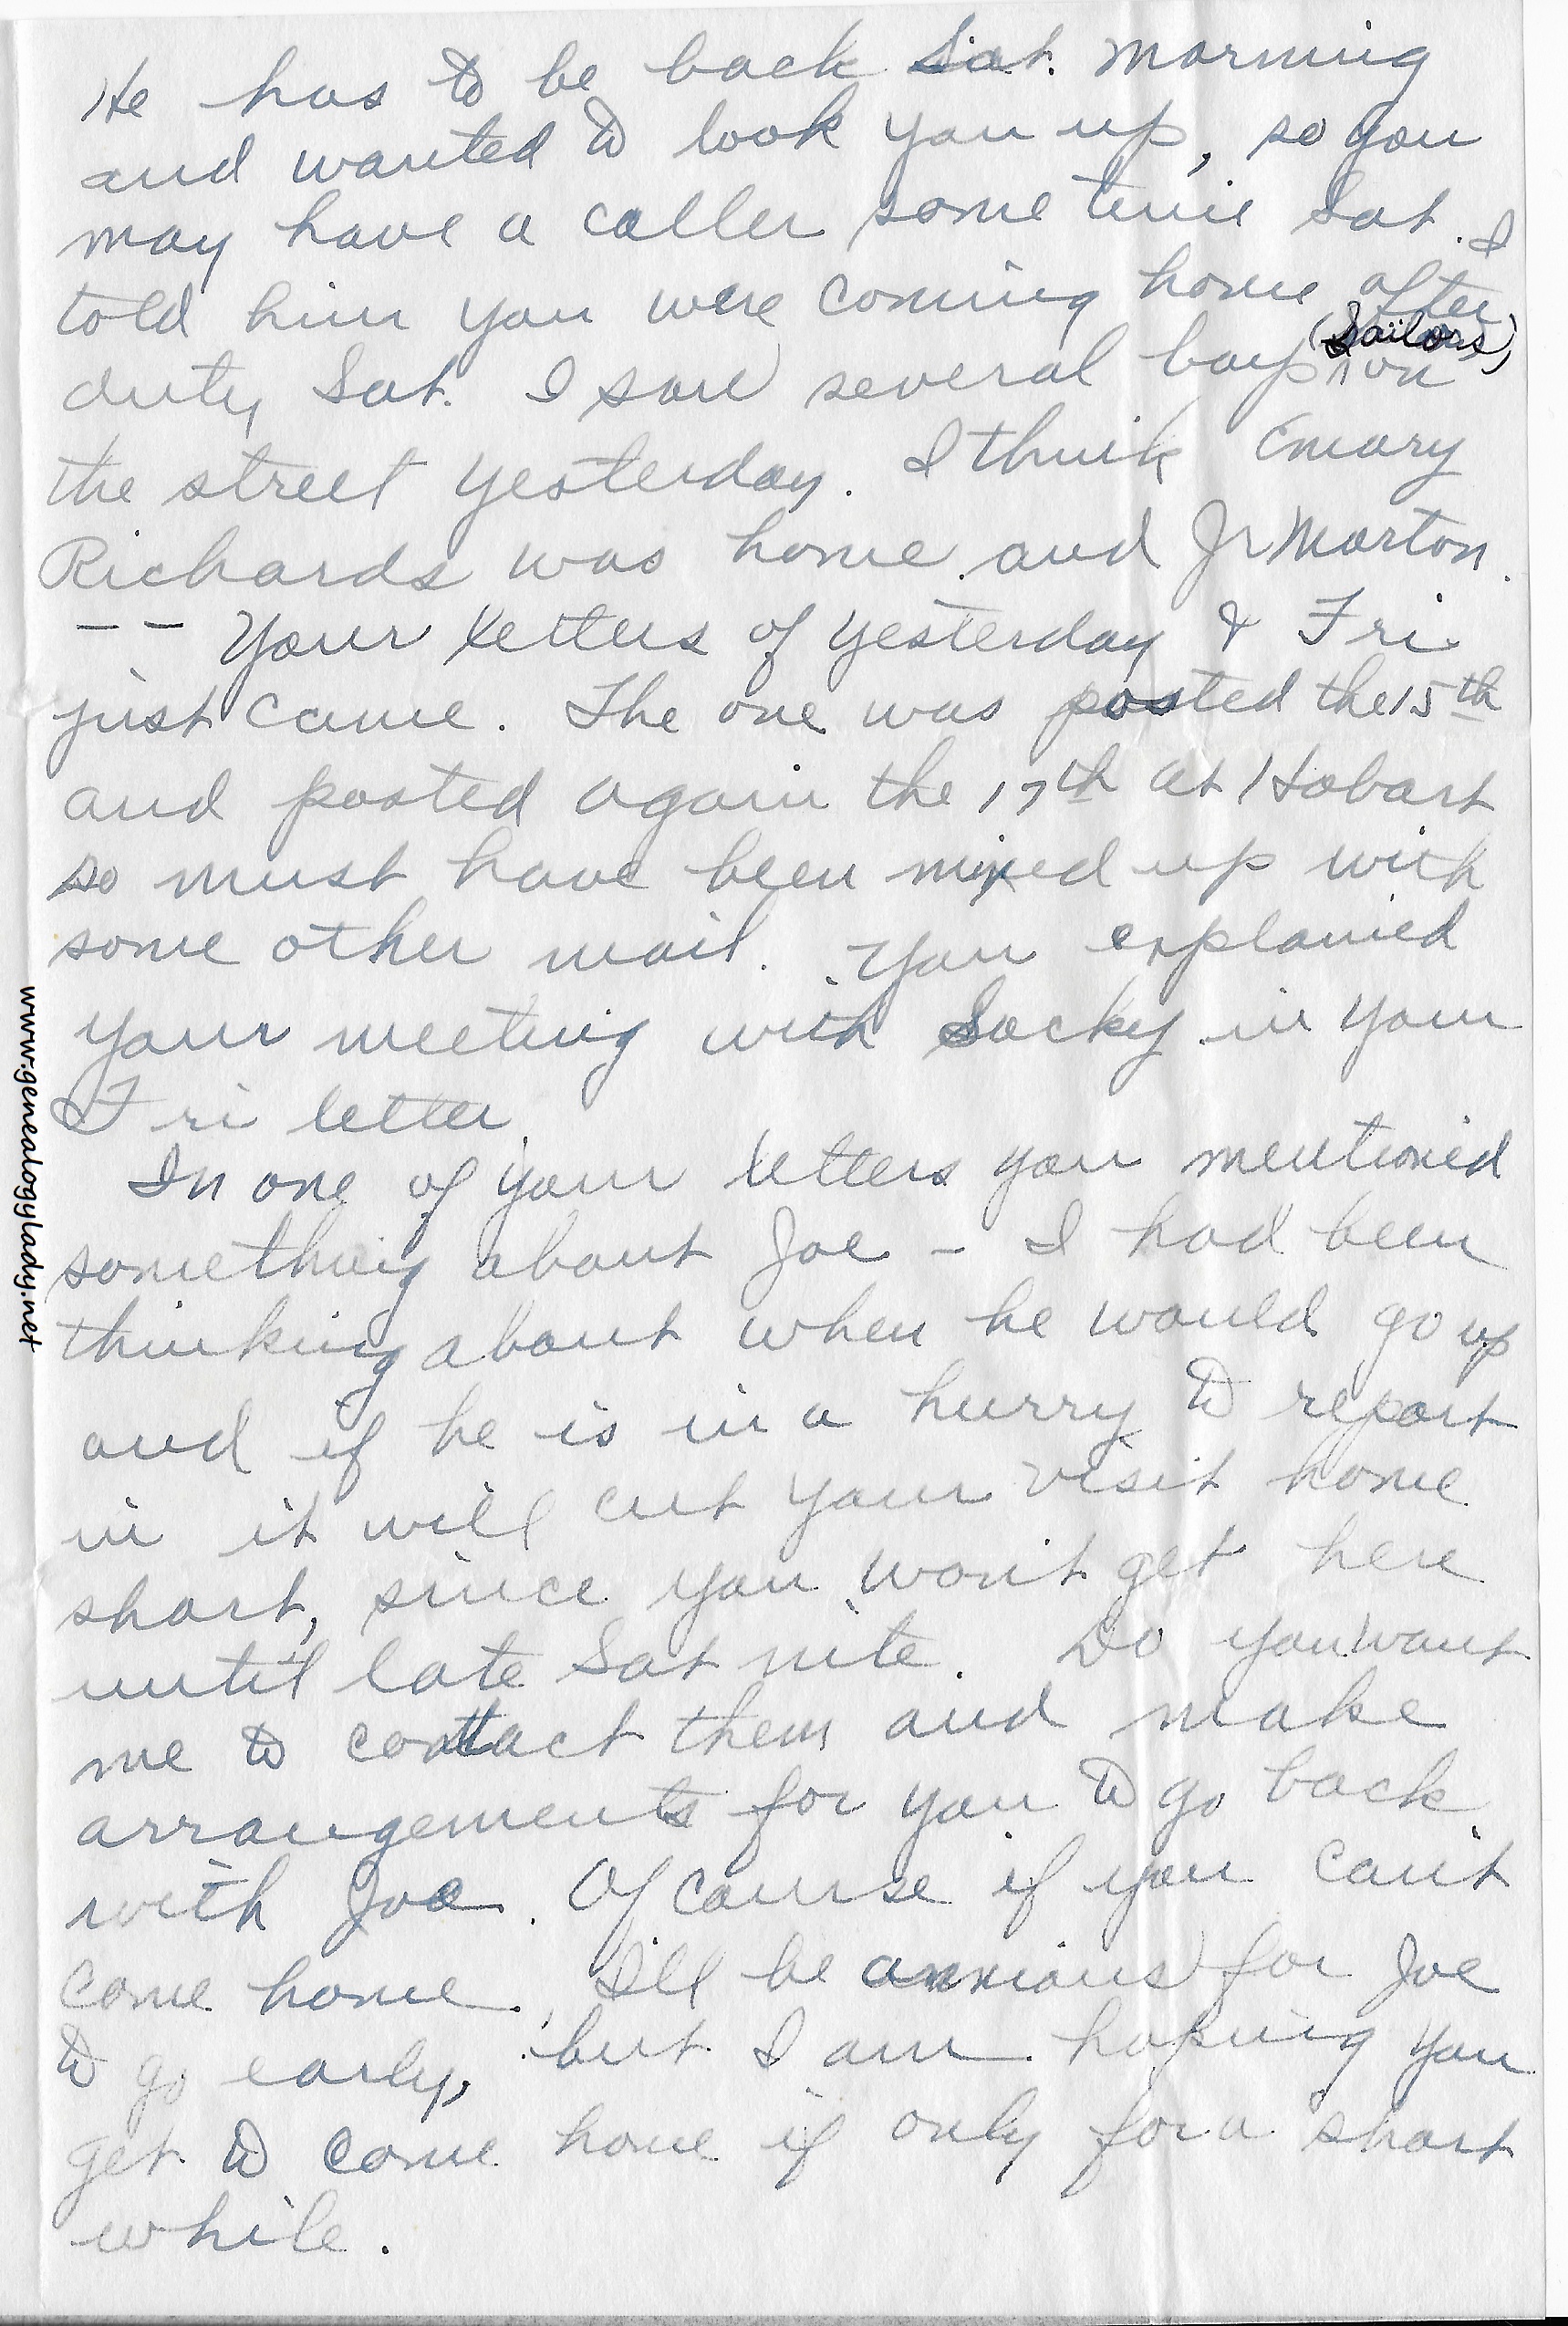 He has to be back Sat. morning
and wanted to look you up, so you
may have a caller some time Sat. I
told him you were coming home after
duty Sat. I saw several boys (Sailors) on
the street yesterday. I think Emory
Richards was home and Jr Morton.
-- Your letters of yesterday & Fri
just came. The one was posted the 15th
and posted again the 17th at Hobart
so must have been mixed up with
some other mail. You explained
your meeting with Socky in your
Fri letter.
In one of your letters you mentioned
something about Joe - I had been
thinking about when he would go up
and if he is in a hurry to report
in it will cut your visit home
short, since you won't get here
until late Sat nite. Do you want
me to contact them and make
arrangements for you to go back
with Joe. Of course if you can't
come home, I'll be anxious for Joe
to go early, but I am hoping you
get to come home if only for a short
while.
www.genealogylady.net